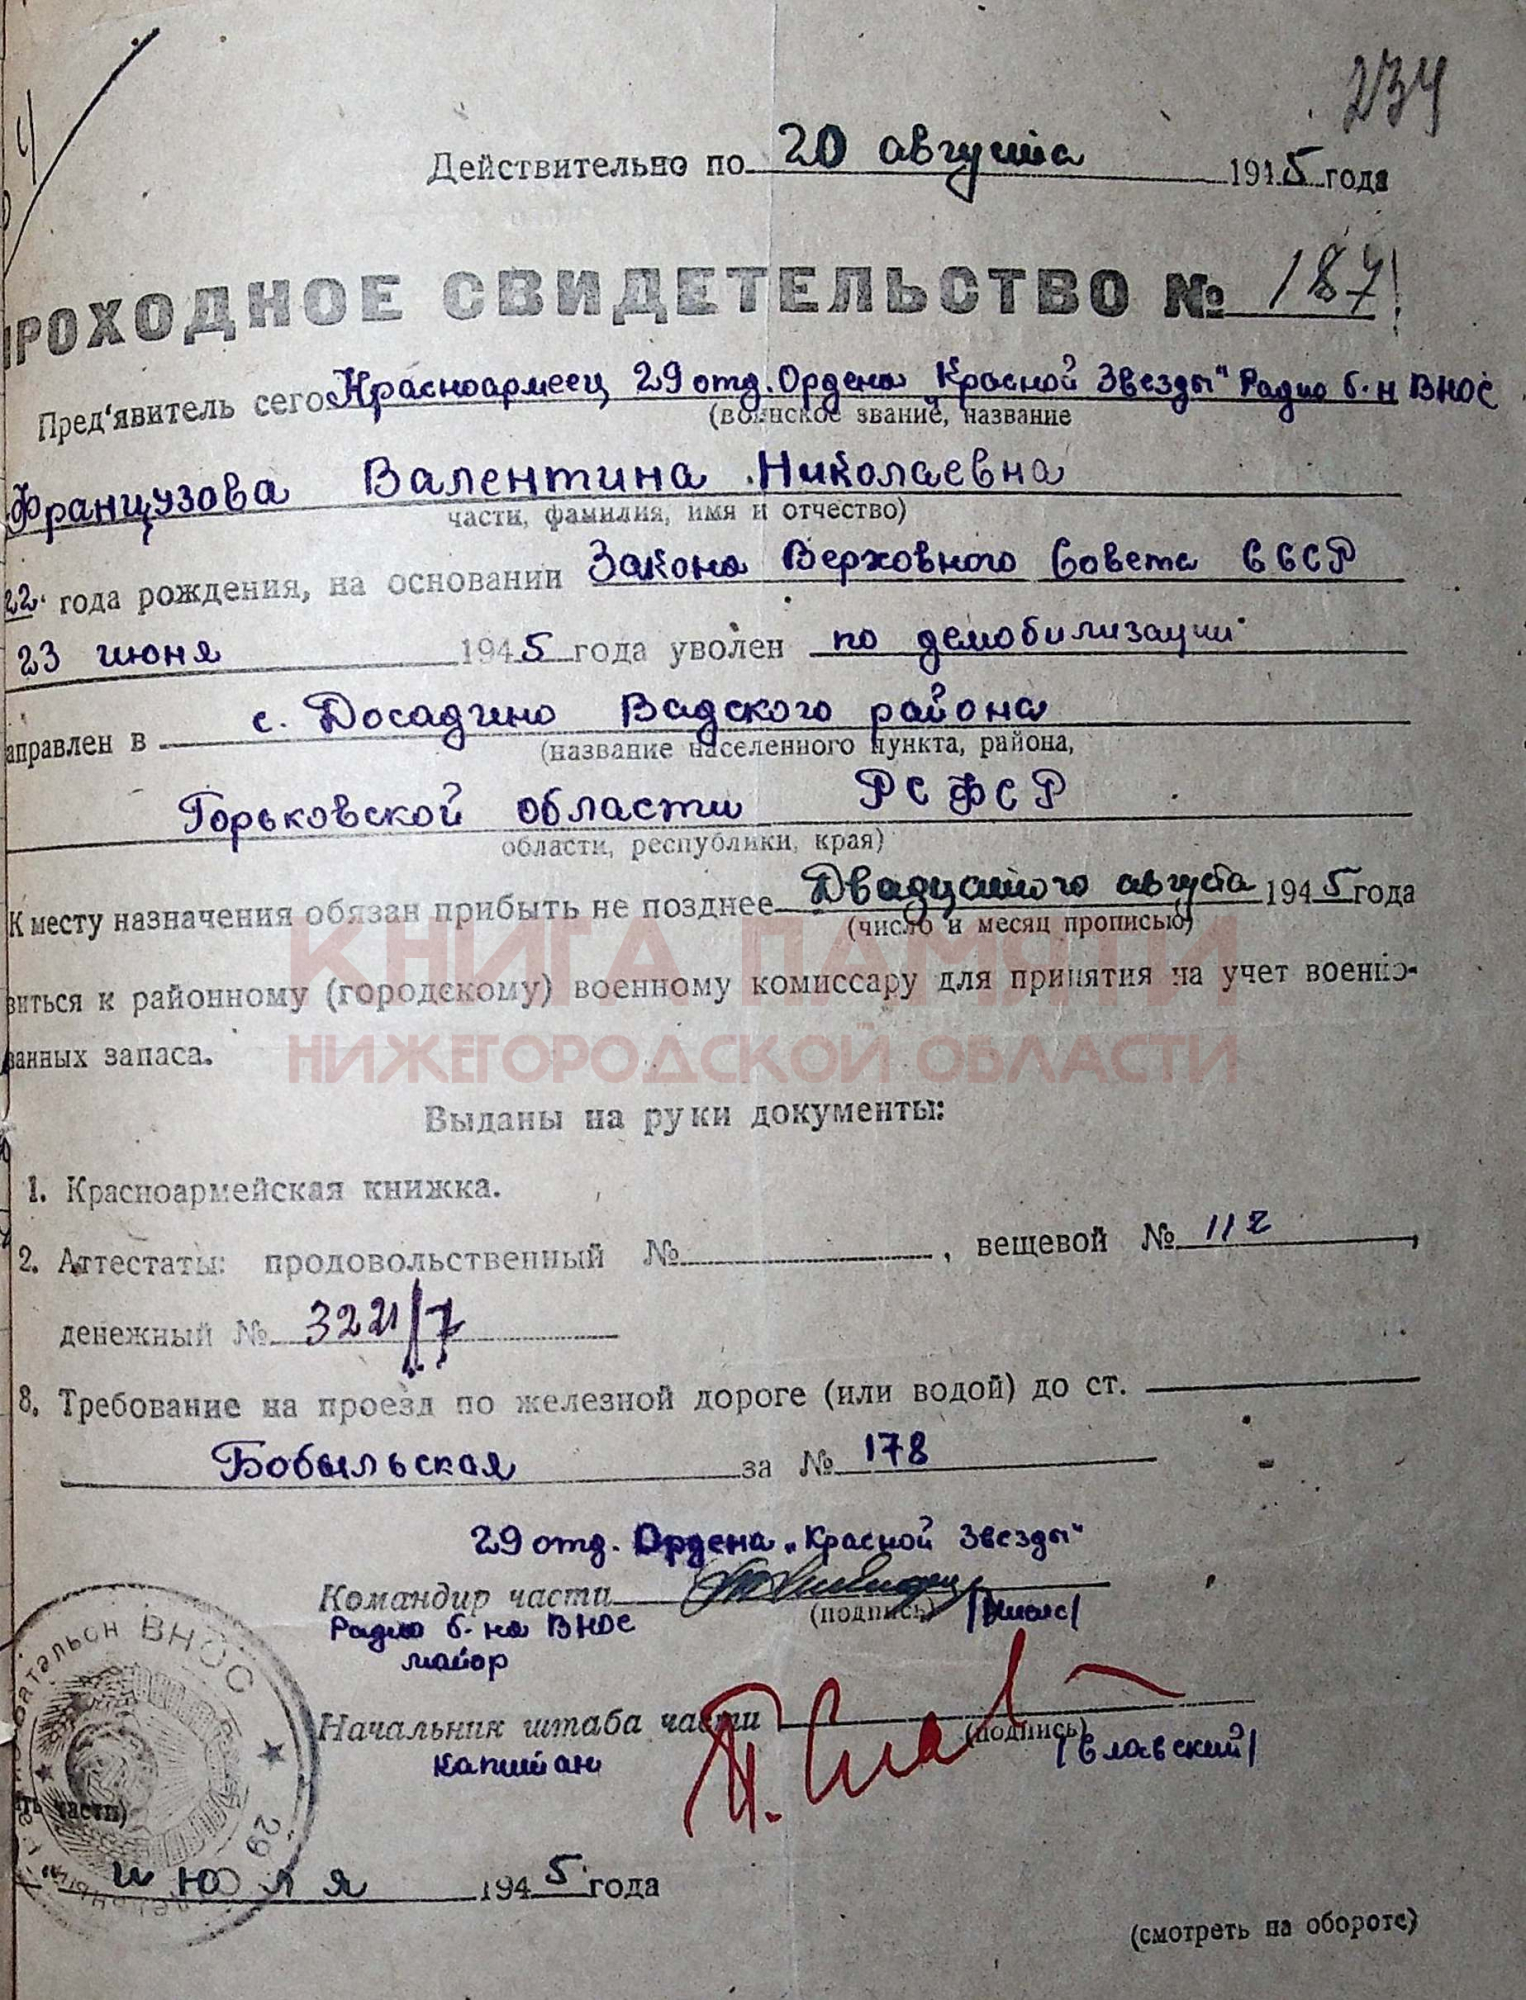 234
Действительно по 20 августа 1945 года
ПРОХОДНОЕ СВИДЕТЕЛЬСТВО № 187
Пред'явитель сего Красноармеец 29 отд. Ордена Красной Звезды" Радио б-н ВНОС
(воинское звание, название
Французова Валентина Николаевна
части, фамилия, имя и отчество)
22 года рождения, на основании Закона Верховного Совета СССР
23 июня 1945 года уволен по демобилизации
аправлен в с. Досадино Вадского района
(название населенного пункта, района,
Горьковской области РСФСР
области, республики, края)
К месту назначения обязан прибыть не позднее Двадцатого августа 1945 года
(число и месяц прописью)
КНИГА ПАМЯТИ
виться к районному (городскому) военному комиссару для принятия на учет военно-
НИЖЕГОРОДСКОЙ ОБЛАСТИ
занных запаса.
Выданы на руки документы:
1. Красноармейская книжка.
2. Аттестаты: продовольственный № , вещевой № 112
денежный № 3221/7
3. Требование на проезд по железной дороге (или водой) до ст.
Бобыльская за № 178
29 отд. Ордена „Красной Звезды"
Командир части
(подпись)
Радио б-на ВНОС
майор
Начальник штаба части
(подпись)
капитан /Славский/
ть части)
" июля 1945 года
ВНОС ★ 29
(смотреть на обороте)